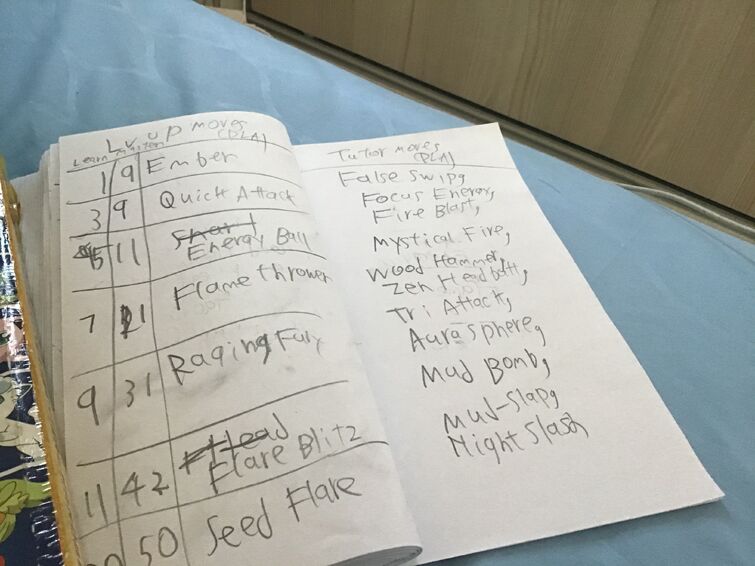 Lv up moves
(PLA)
Learn Master
1 9 Ember
3 9 Quick Attack
5 11 Energy Ball
7 21 Flame thrower
9 31 Raging Fury
11 42 Flare Blitz
50 Seed Flare
Tutor moves
(PLA)
False Swipe,
Focus Energy,
Fire Blast,
Mystical Fire,
Wood Hammer,
Zen Headbutt,
Tri Attack,
Aura sphere,
Mud Bomb,
Mud-slap,
Night Slash